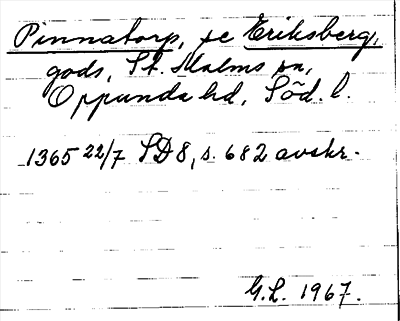 Pinnatorp, se Eriksberg,
gods, St. Malms sn,
Oppunda hd, Söd. l.
1365 22/7 SD 8, s. 682 avskr.
G.L. 1967.